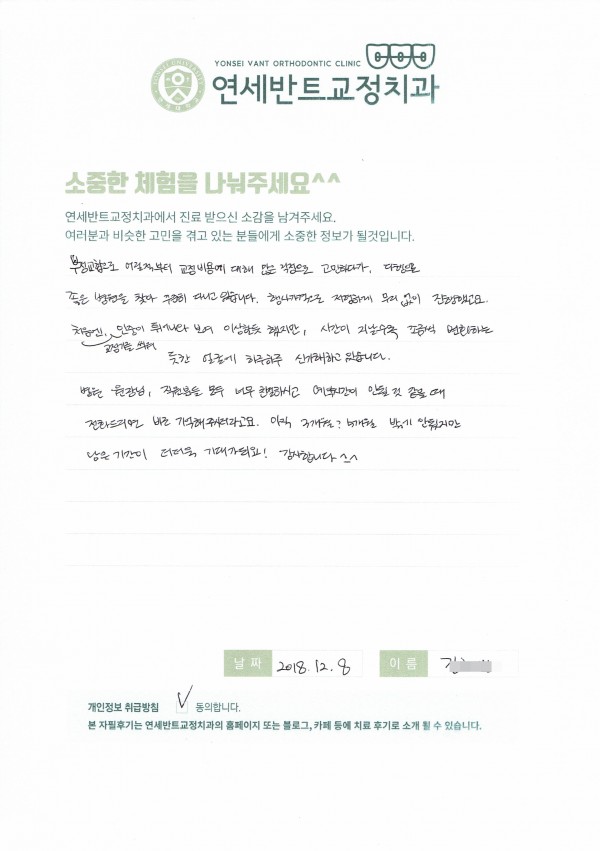 YONSEI VANT ORTHODONTIC CLINIC
연세반트교정치과
소중한 체험을 나눠주세요^^
연세반트교정치과에서 진료 받으신 소감을 남겨주세요.
여러분과 비슷한 고민을 겪고 있는 분들에게 소중한 정보가 될것입니다.
부정교합으로 어릴적부터 교정비용에 대해 많은 걱정으로 고민하다가, 다행으로
좋은 병원을 찾아 꾸준히 다니고 있습니다. 무리 없이 진행했고요.
처음엔, 교정기를 껴서 인중이 튀어나와 보여 이상한듯 했지만, 시간이 지날수록 조금씩 변화하는
듯한 얼굴에 하루하루 신기해하고 있습니다.
병원 원장님, 직원분들 모두 너무 친절하시고 예약시간이 안될 것 같을 때
전화드리면 바로 기억해주시더라고요. 아직 개월? 개월 밖에 안됐지만
남은 기간이 더더욱 기대가되요! 감사합니다 ^^
날짜 2018. 12. 8 이름 김
개인정보 취급방침 ✓ 동의합니다.
본 자필후기는 연세반트교정치과의 홈페이지 또는 블로그, 카페 등에 치료 후기로 소개 될 수 있습니다.